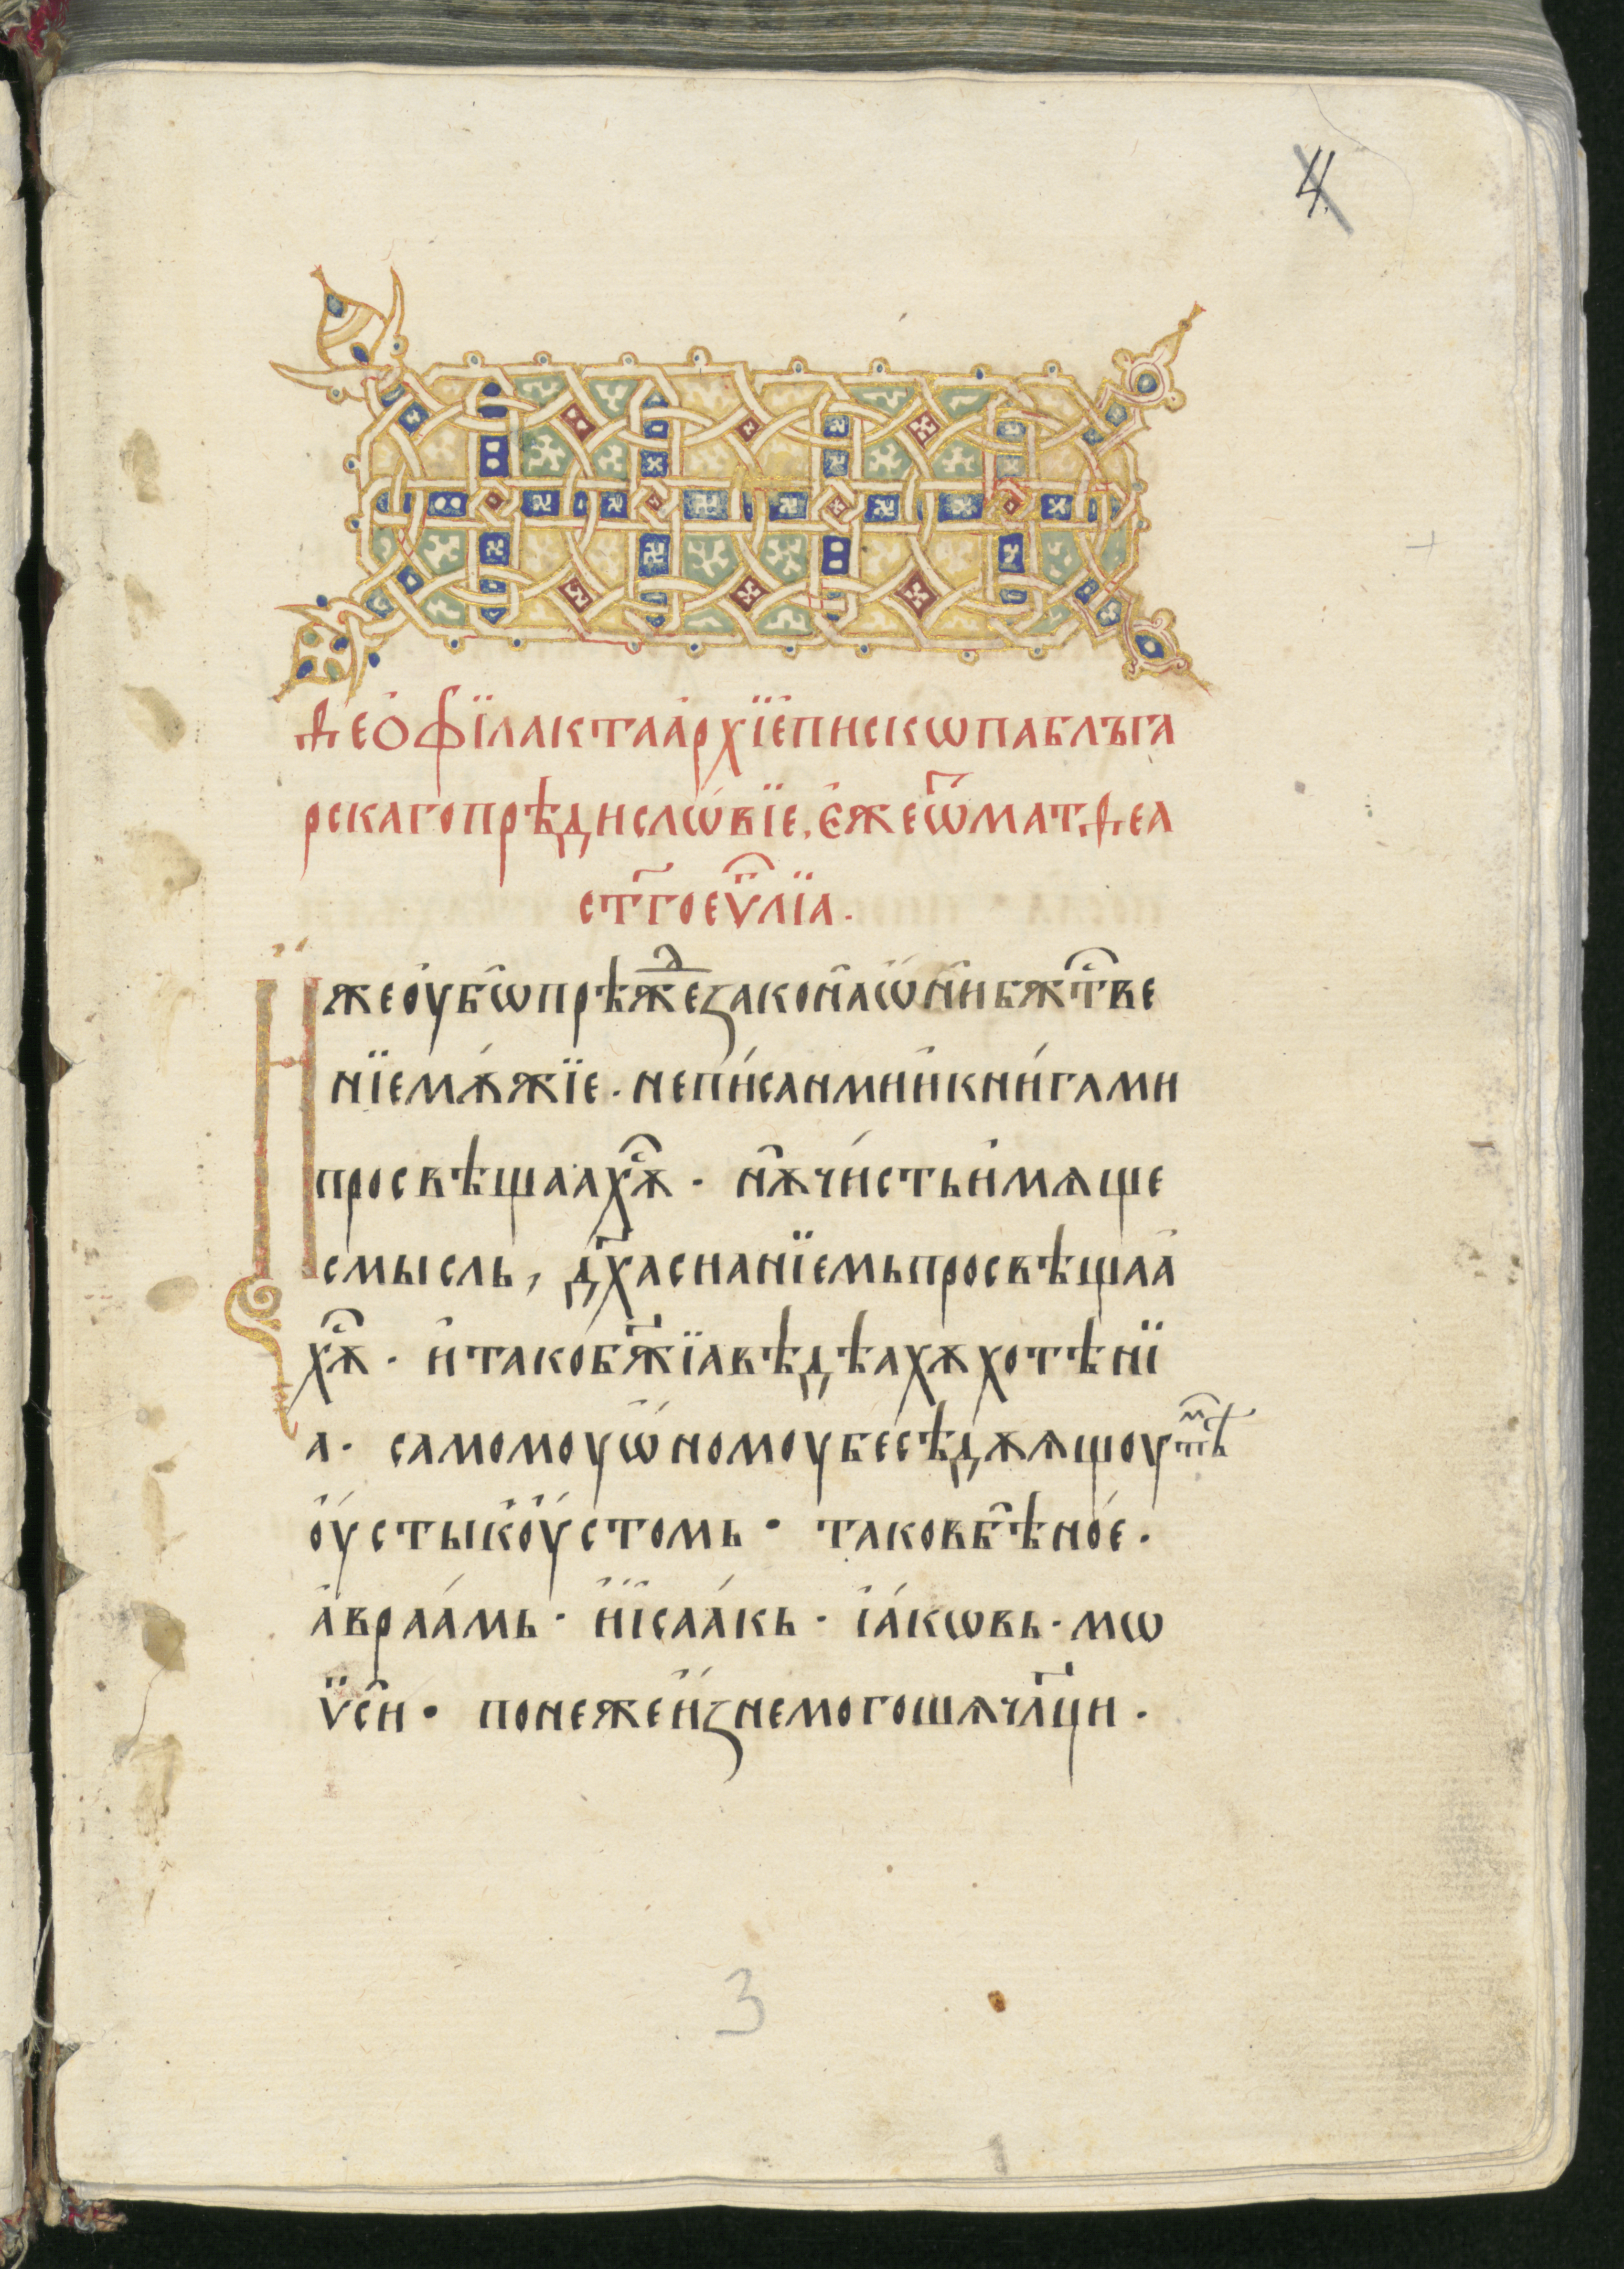 4
Ѳеѻфїлактаархїепискѡпаблъга
рскагопрѣдислѡвїе, єжеѿматѳеа
ст҃гоеѵ҃лїа.
Ижеоубѡпрѣжⷣезаконаѡнибжⷭ҇тве
нїемѫжїе · неписанмиикнигами
просвѣщаахѫ · нѫчистьимѫще
смысль, дх҃асианїемьпросвѣщаа
хѫ · итакобж҃їавѣдѣахѫхотѣнї
а · самомоуѡномоубесѣдѫѧщоуимⷨть
оустыкоустомь · таковбѣное ·
авраамь · иїсаакь · іакѡвь · мѡ
ѵ̈си · понежеиꙁнемогошѧчл҃ци ·
3
1